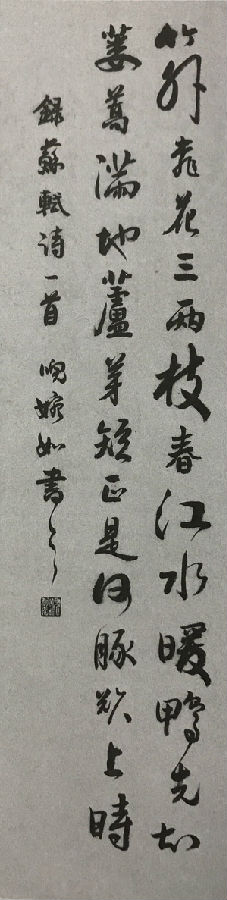 竹外桃花三兩枝春江水暖鴨先知
蔞蒿滿地蘆芽短正是河豚欲上時
録蘇軾詩一首 婉如書